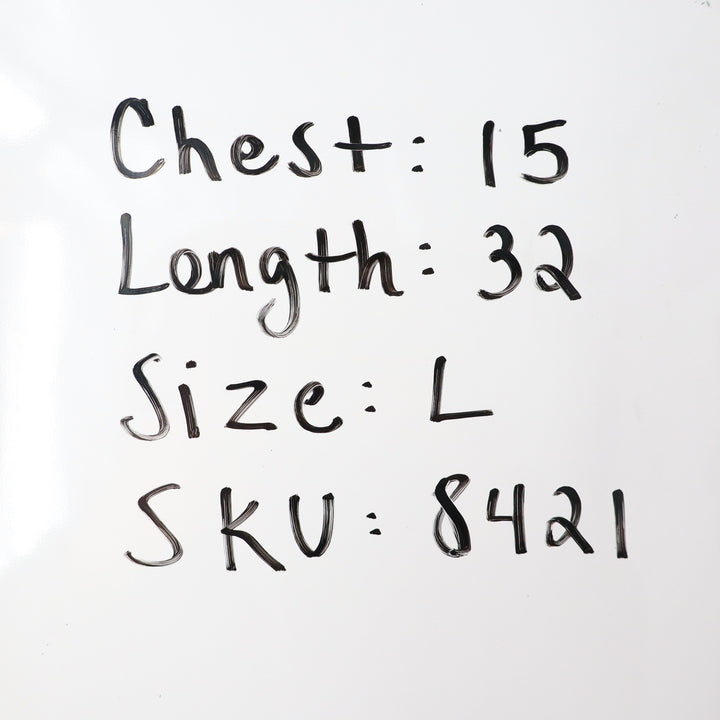 Chest: 15
Length: 32
Size: L
SKU: 8421